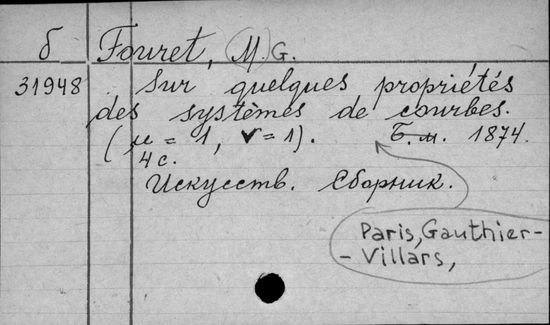 б Fouret, M. G.
31948 Sur quelques propriétés
des systèmes de courbes.
(μ = 1, ν = 1). Б. м. 1874.
4 с.
Искусств. Сборник.
Paris, Gauthier-
-Villars,